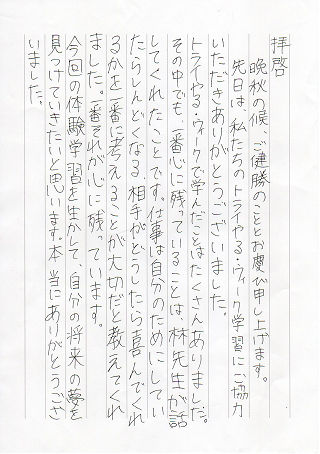 拝啓
晩秋の候、ご健勝のこととお慶び申し上げます。
先日は、私たちのトライやる・ウィーク学習にご協力
いただきありがとうございました。
トライやる・ウィークで学んだことはたくさんありました。
その中でも、一番心に残っていることは、林先生が話
してくれたことです。仕事は自分のためにしてい
たらしんどくなる、相手がどうしたら喜んでくれ
るかを一番に考えることが大切だと教えてくれ
ました。一番それが心に残っています。
今回の体験学習を生かして、自分の将来の夢を
見つけていきたいと思います。本当にありがとうござ
いました。